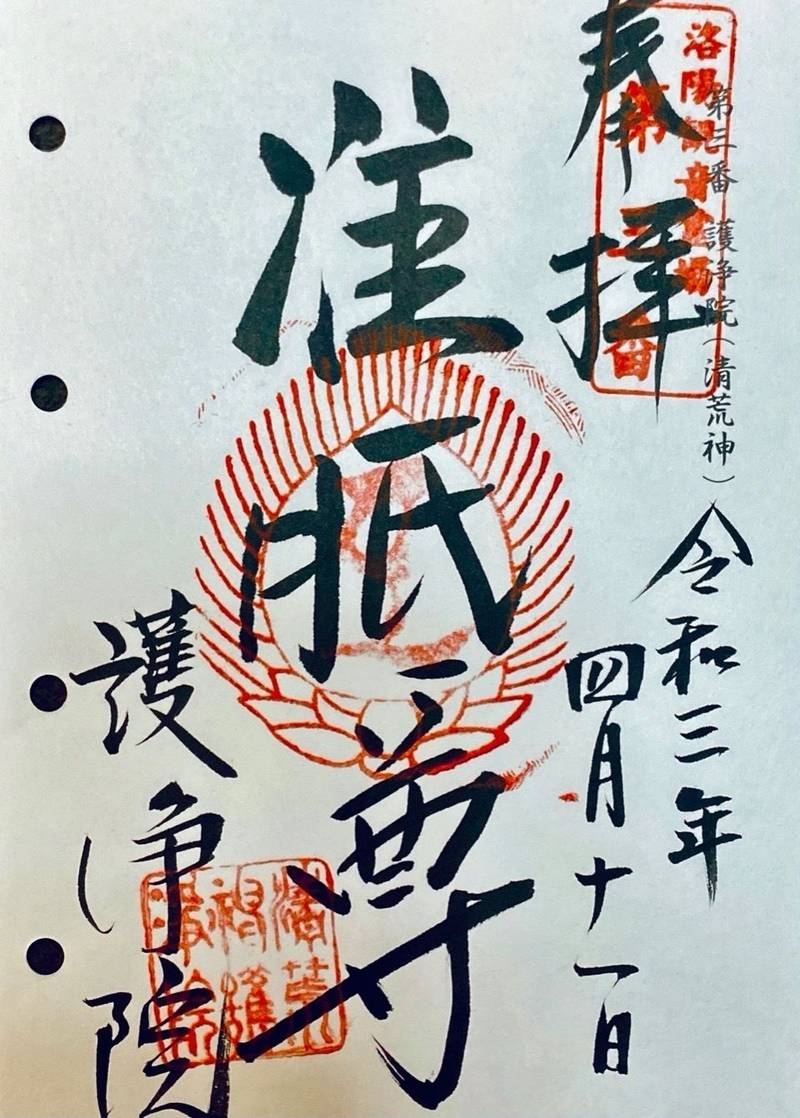 奉拝
洛陽観音霊場
第三番
第三番 護浄院（清荒神）
令和三年
四月十一日
准胝尊
護浄院